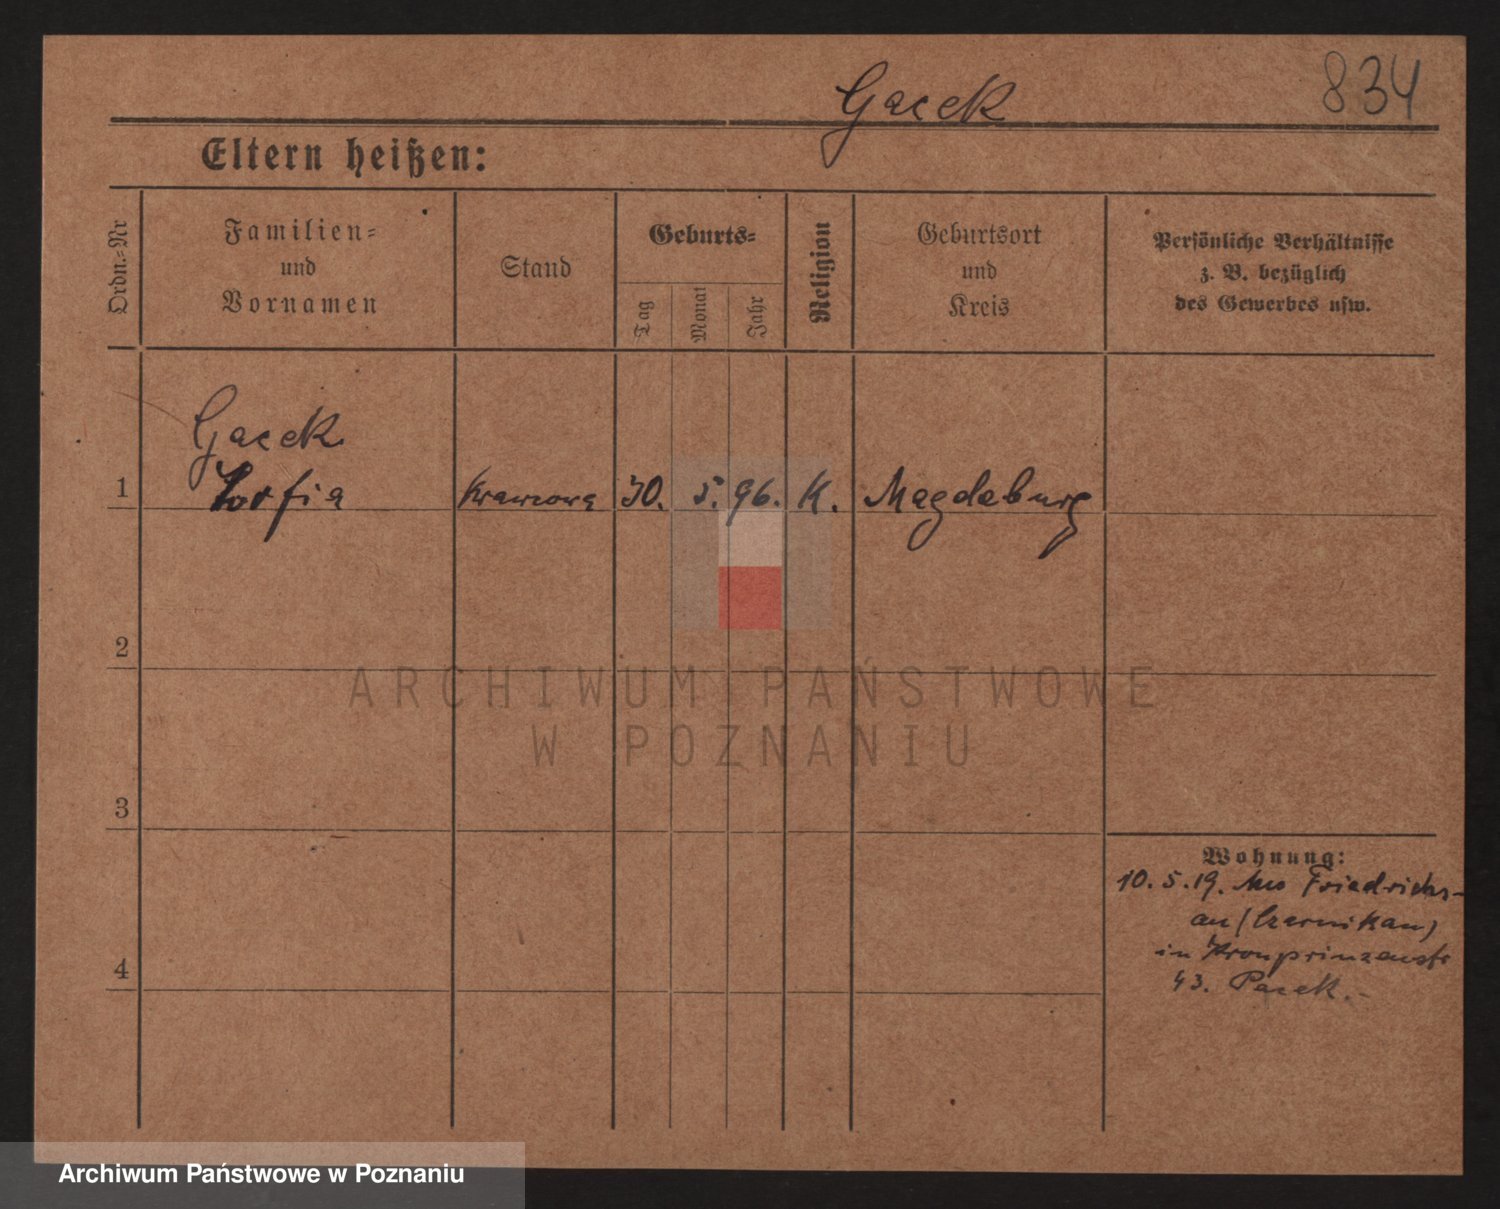 Gacek 834
Eltern heißen:
Ordn.-Nr
Familien-
und
Vornamen
Stand
Geburts-
Tag
Monat
Jahr
Religion
Geburtsort
und
Kreis
Persönliche Verhältnisse
z. B. bezüglich
des Gewerbes usw.
Gacek
1 Zofia Krawcowa 30. 5. 96. K. Magdeburg
2
ARCHIWUM PAŃSTWOWE
W POZNANIU
3
Wohnung:
10. 5. 19. Friedrichs-
au (Czarnikau)
in Kronprinzenstr
43. Pacek.-
4
Archiwum Państwowe w Poznaniu